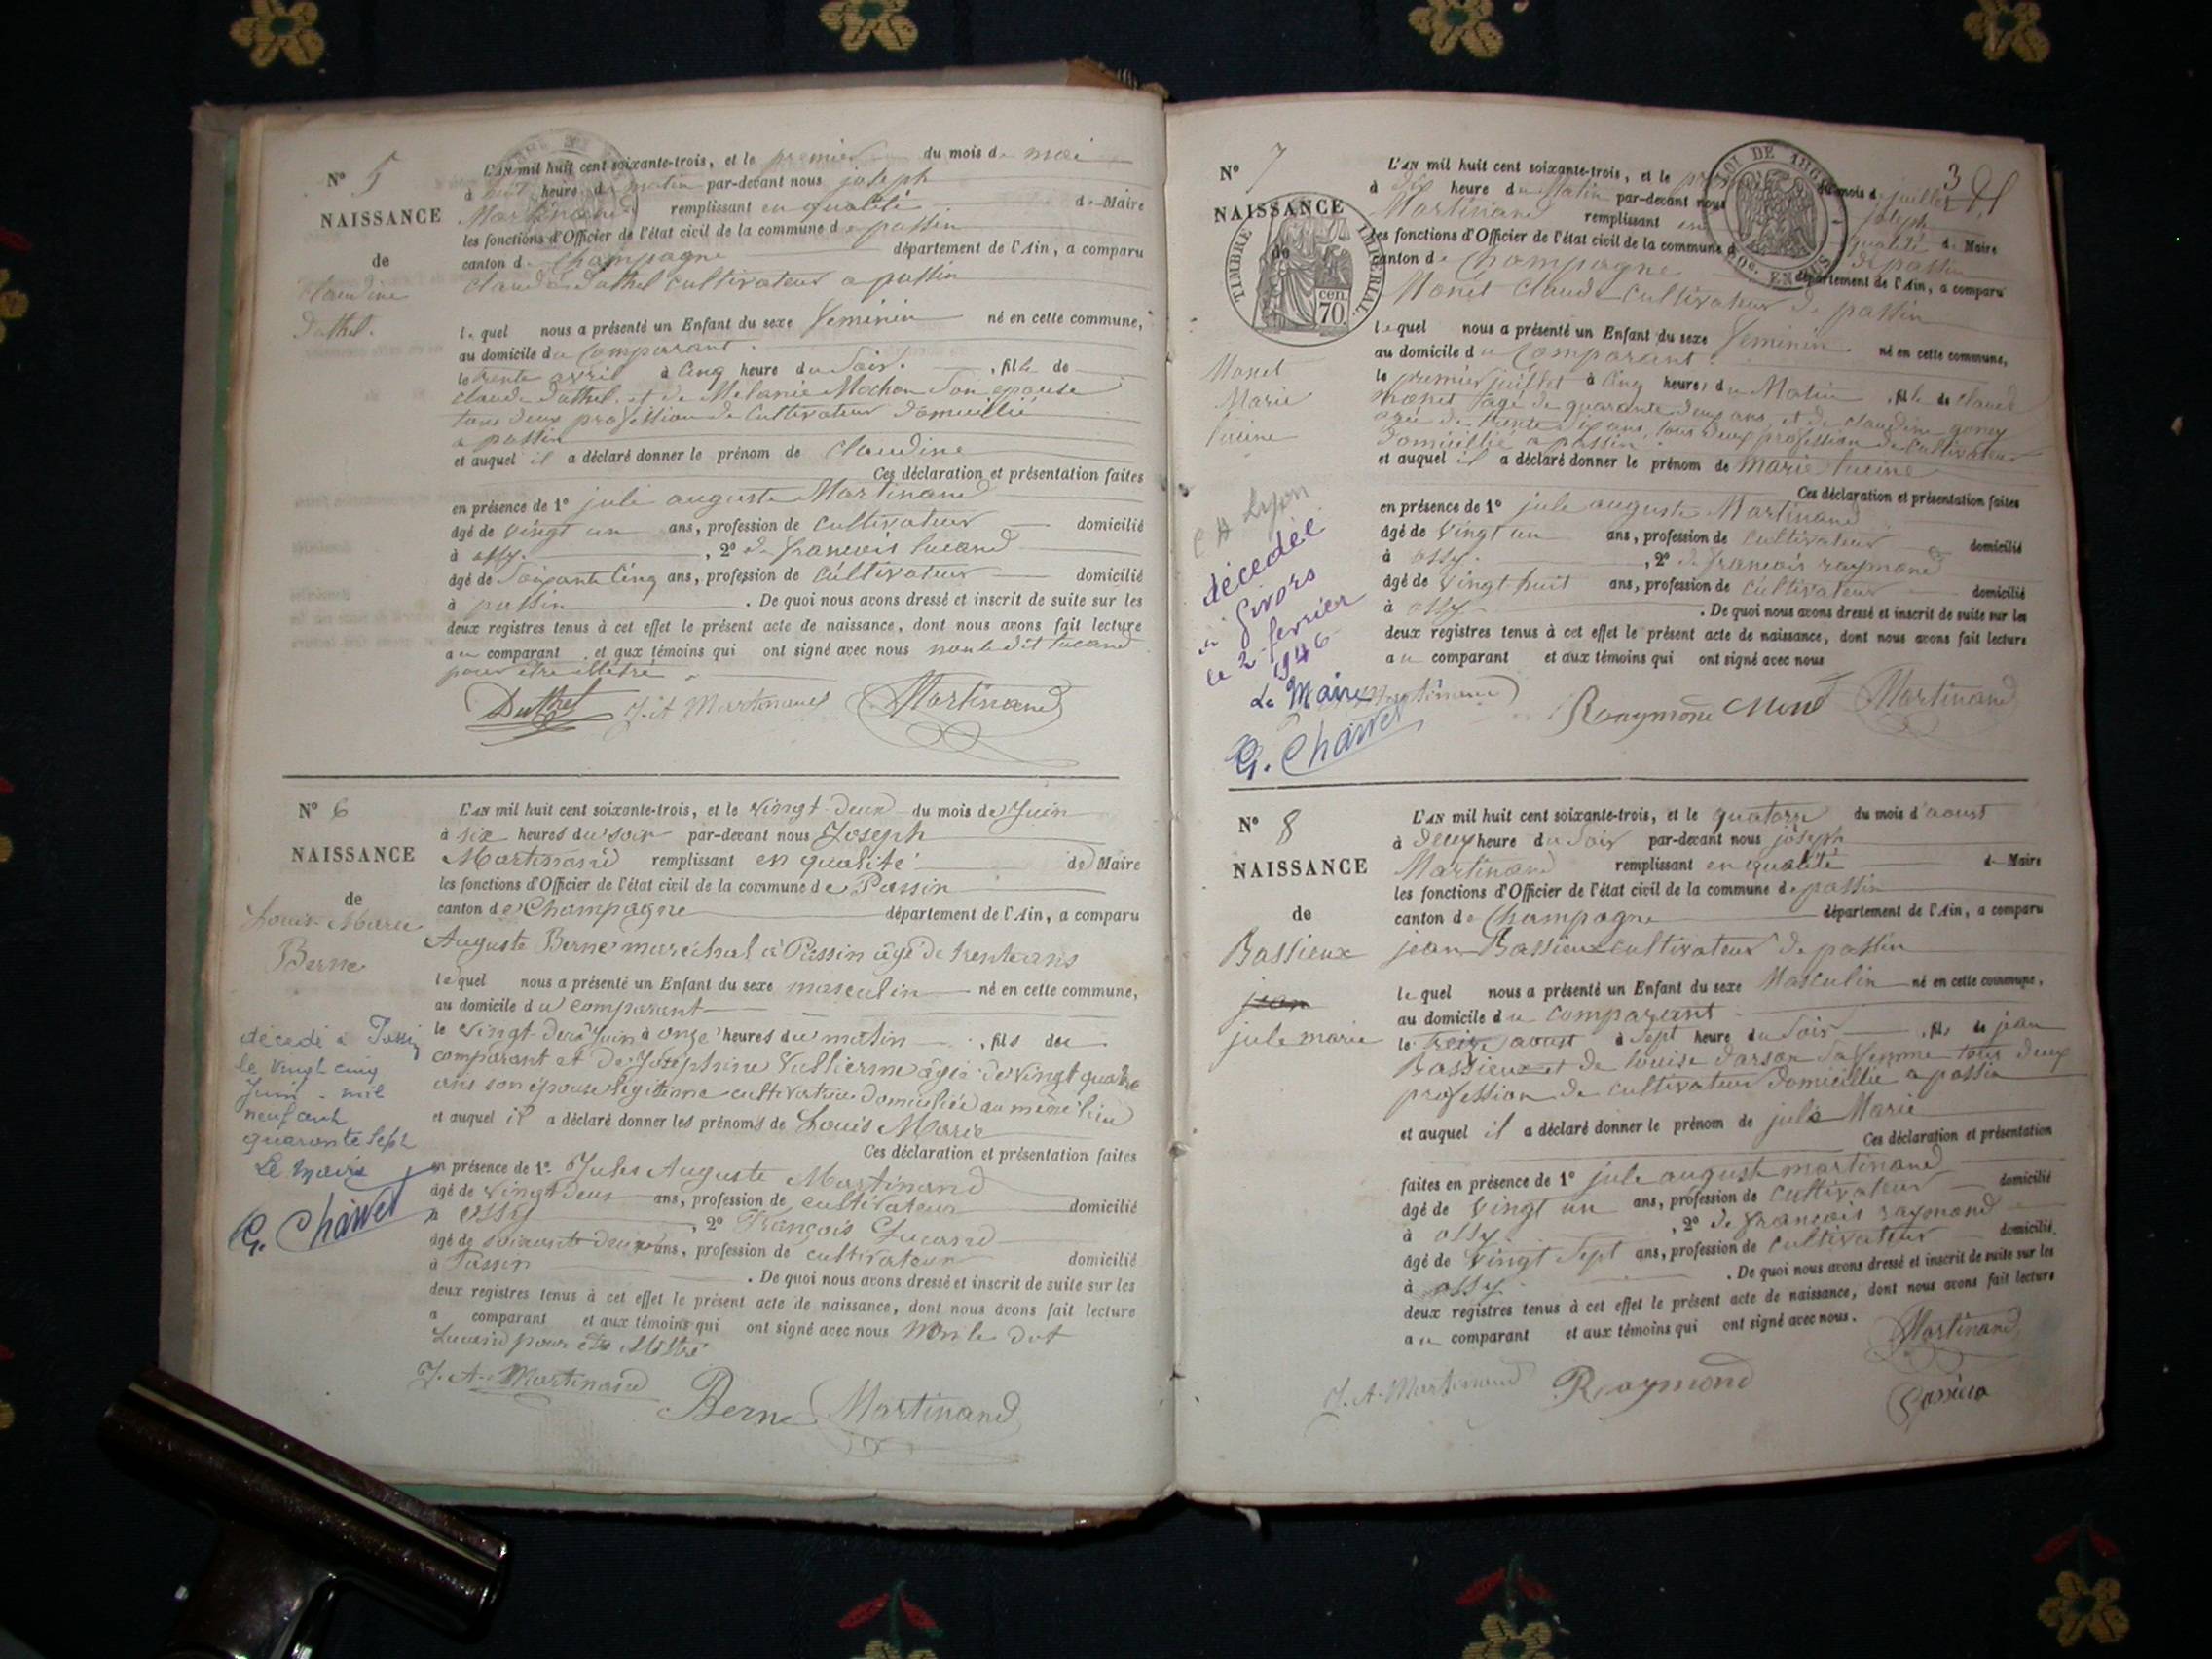 N° 5
NAISSANCE
de
claudine
Duthel.
L'AN mil huit cent soixante-trois, et le premier du mois de mai
à huit heure du matin par-devant nous joseph
Martinand remplissant en qualité de Maire
les fonctions d'Officier de l'état civil de la commune de passin
canton de Champagne département de l'Ain, a comparu
claude duthel cultivateur a passin
lequel nous a présenté un Enfant du sexe feminin né en cette commune,
au domicile du Comparant.
le trente avril à cinq heure du Soir. , fille de
claude duthel et de Melanie Mochon Son epouse
tous deux profession de Cultivateur domicillié
a passin
et auquel il a déclaré donner le prénom de claudine
Ces déclaration et présentation faites
en présence de 1° jule auguste Martinand
âgé de vingt un ans, profession de cultivateur domicilié
à ossy. , 2° de francois lucand
âgé de Soixante Cinq ans, profession de cultivateur domicilié
à passin . De quoi nous avons dressé et inscrit de suite sur les
deux registres tenus à cet effet le présent acte de naissance, dont nous avons fait lecture
au comparant et aux témoins qui ont signé avec nous non le dit lucand
pour être illétré
Duthel J. A. Martinand Martinand
N° 6
NAISSANCE
de
Louis-Marie
Berne
décédé à Passin
le vingt cinq
Juin mil
neuf cent
quarante sept
Le Maire
G. Charvet
L'AN mil huit cent soixante-trois, et le vingt-deux du mois de Juin
à six heures du soir par-devant nous Joseph
Martinand remplissant en qualité de Maire
les fonctions d'Officier de l'état civil de la commune de Passin
canton de Champagne département de l'Ain, a comparu
Auguste Berne maréchal à Passin âgé de trente ans
lequel nous a présenté un Enfant du sexe masculin né en cette commune,
au domicile du comparant
le vingt-deux Juin à onze heures du matin , fils du
comparant et de Joséphine Vullierme âgée de vingt quatre
ans son épouse légitime cultivatrice domiciliée au même lieu
et auquel il a déclaré donner les prénoms de Louis Marie
Ces déclaration et présentation faites
en présence de 1° Jules Auguste Martinand
âgé de vingt deux ans, profession de cultivateur domicilié
à ossy , 2° François Lucand
âgé de soixante deux ans, profession de cultivateur domicilié
à Passin . De quoi nous avons dressé et inscrit de suite sur les
deux registres tenus à cet effet le présent acte de naissance, dont nous avons fait lecture
a comparant et aux témoins qui ont signé avec nous non le dit
Lucand pour être illétré
J. A. Martinand Berne Martinand
3
N° 7
NAISSANCE
de
TIMBRE IMPERIAL
cen.
70
LOI DE 1862
Monet
Marie
lucine
Lyon
décédée
à Givors
le 2 février
1946
Le Maire
G. Charvet
L'AN mil huit cent soixante-trois, et le premier du mois de juillet
à dix heure du Matin par-devant nous joseph
Martinand remplissant en qualité de Maire
les fonctions d'Officier de l'état civil de la commune de passin
canton de Champagne département de l'Ain, a comparu
Monet Claude Cultivateur de passin
lequel nous a présenté un Enfant du sexe feminin né en cette commune,
au domicile du Comparant.
le premier juillet à cinq heures du Matin , fille de claude
monet agé de quarante deux ans et de claudine
agée de trente ans, tous deux profession de cultivateur
domicillié a passin
et auquel il a déclaré donner le prénom de marie lucine
Ces déclaration et présentation faites
en présence de 1° jule auguste Martinand
âgé de vingt un ans, profession de cultivateur domicilié
à ossy. , 2° de francois raymond
âgé de vingt huit ans, profession de cultivateur domicilié
à ossy . De quoi nous avons dressé et inscrit de suite sur les
deux registres tenus à cet effet le présent acte de naissance, dont nous avons fait lecture
au comparant et aux témoins qui ont signé avec nous
Martinand Raymond Monet Martinand
N° 8
NAISSANCE
de
Bassieux
jean
jule marie
L'AN mil huit cent soixante-trois, et le quatorze du mois d'aoust
à deux heure du Soir par-devant nous joseph
Martinand remplissant en qualité de Maire
les fonctions d'Officier de l'état civil de la commune de passin
canton de Champagne département de l'Ain, a comparu
jean Bassieux cultivateur de passin
lequel nous a présenté un Enfant du sexe Masculin né en cette commune,
au domicile du comparant
le treize aoust à Sept heure du Soir , fils de jean
Bassieux et de louise darson Sa femme tous deux
profession de cultivateur domicillié a passin
et auquel il a déclaré donner le prénom de jule Marie
Ces déclaration et présentation
faites en présence de 1° jule august martinand
âgé de vingt un ans, profession de cultivateur domicilié
à ossy. , 2° de francois raymond
âgé de vingt Sept ans, profession de cultivateur domicilié.
à ossy. . De quoi nous avons dressé et inscrit de suite sur les
deux registres tenus à cet effet le présent acte de naissance, dont nous avons fait lecture
au comparant et aux témoins qui ont signé avec nous.
Martinand
J. A. Martinand Raymond Bassieux